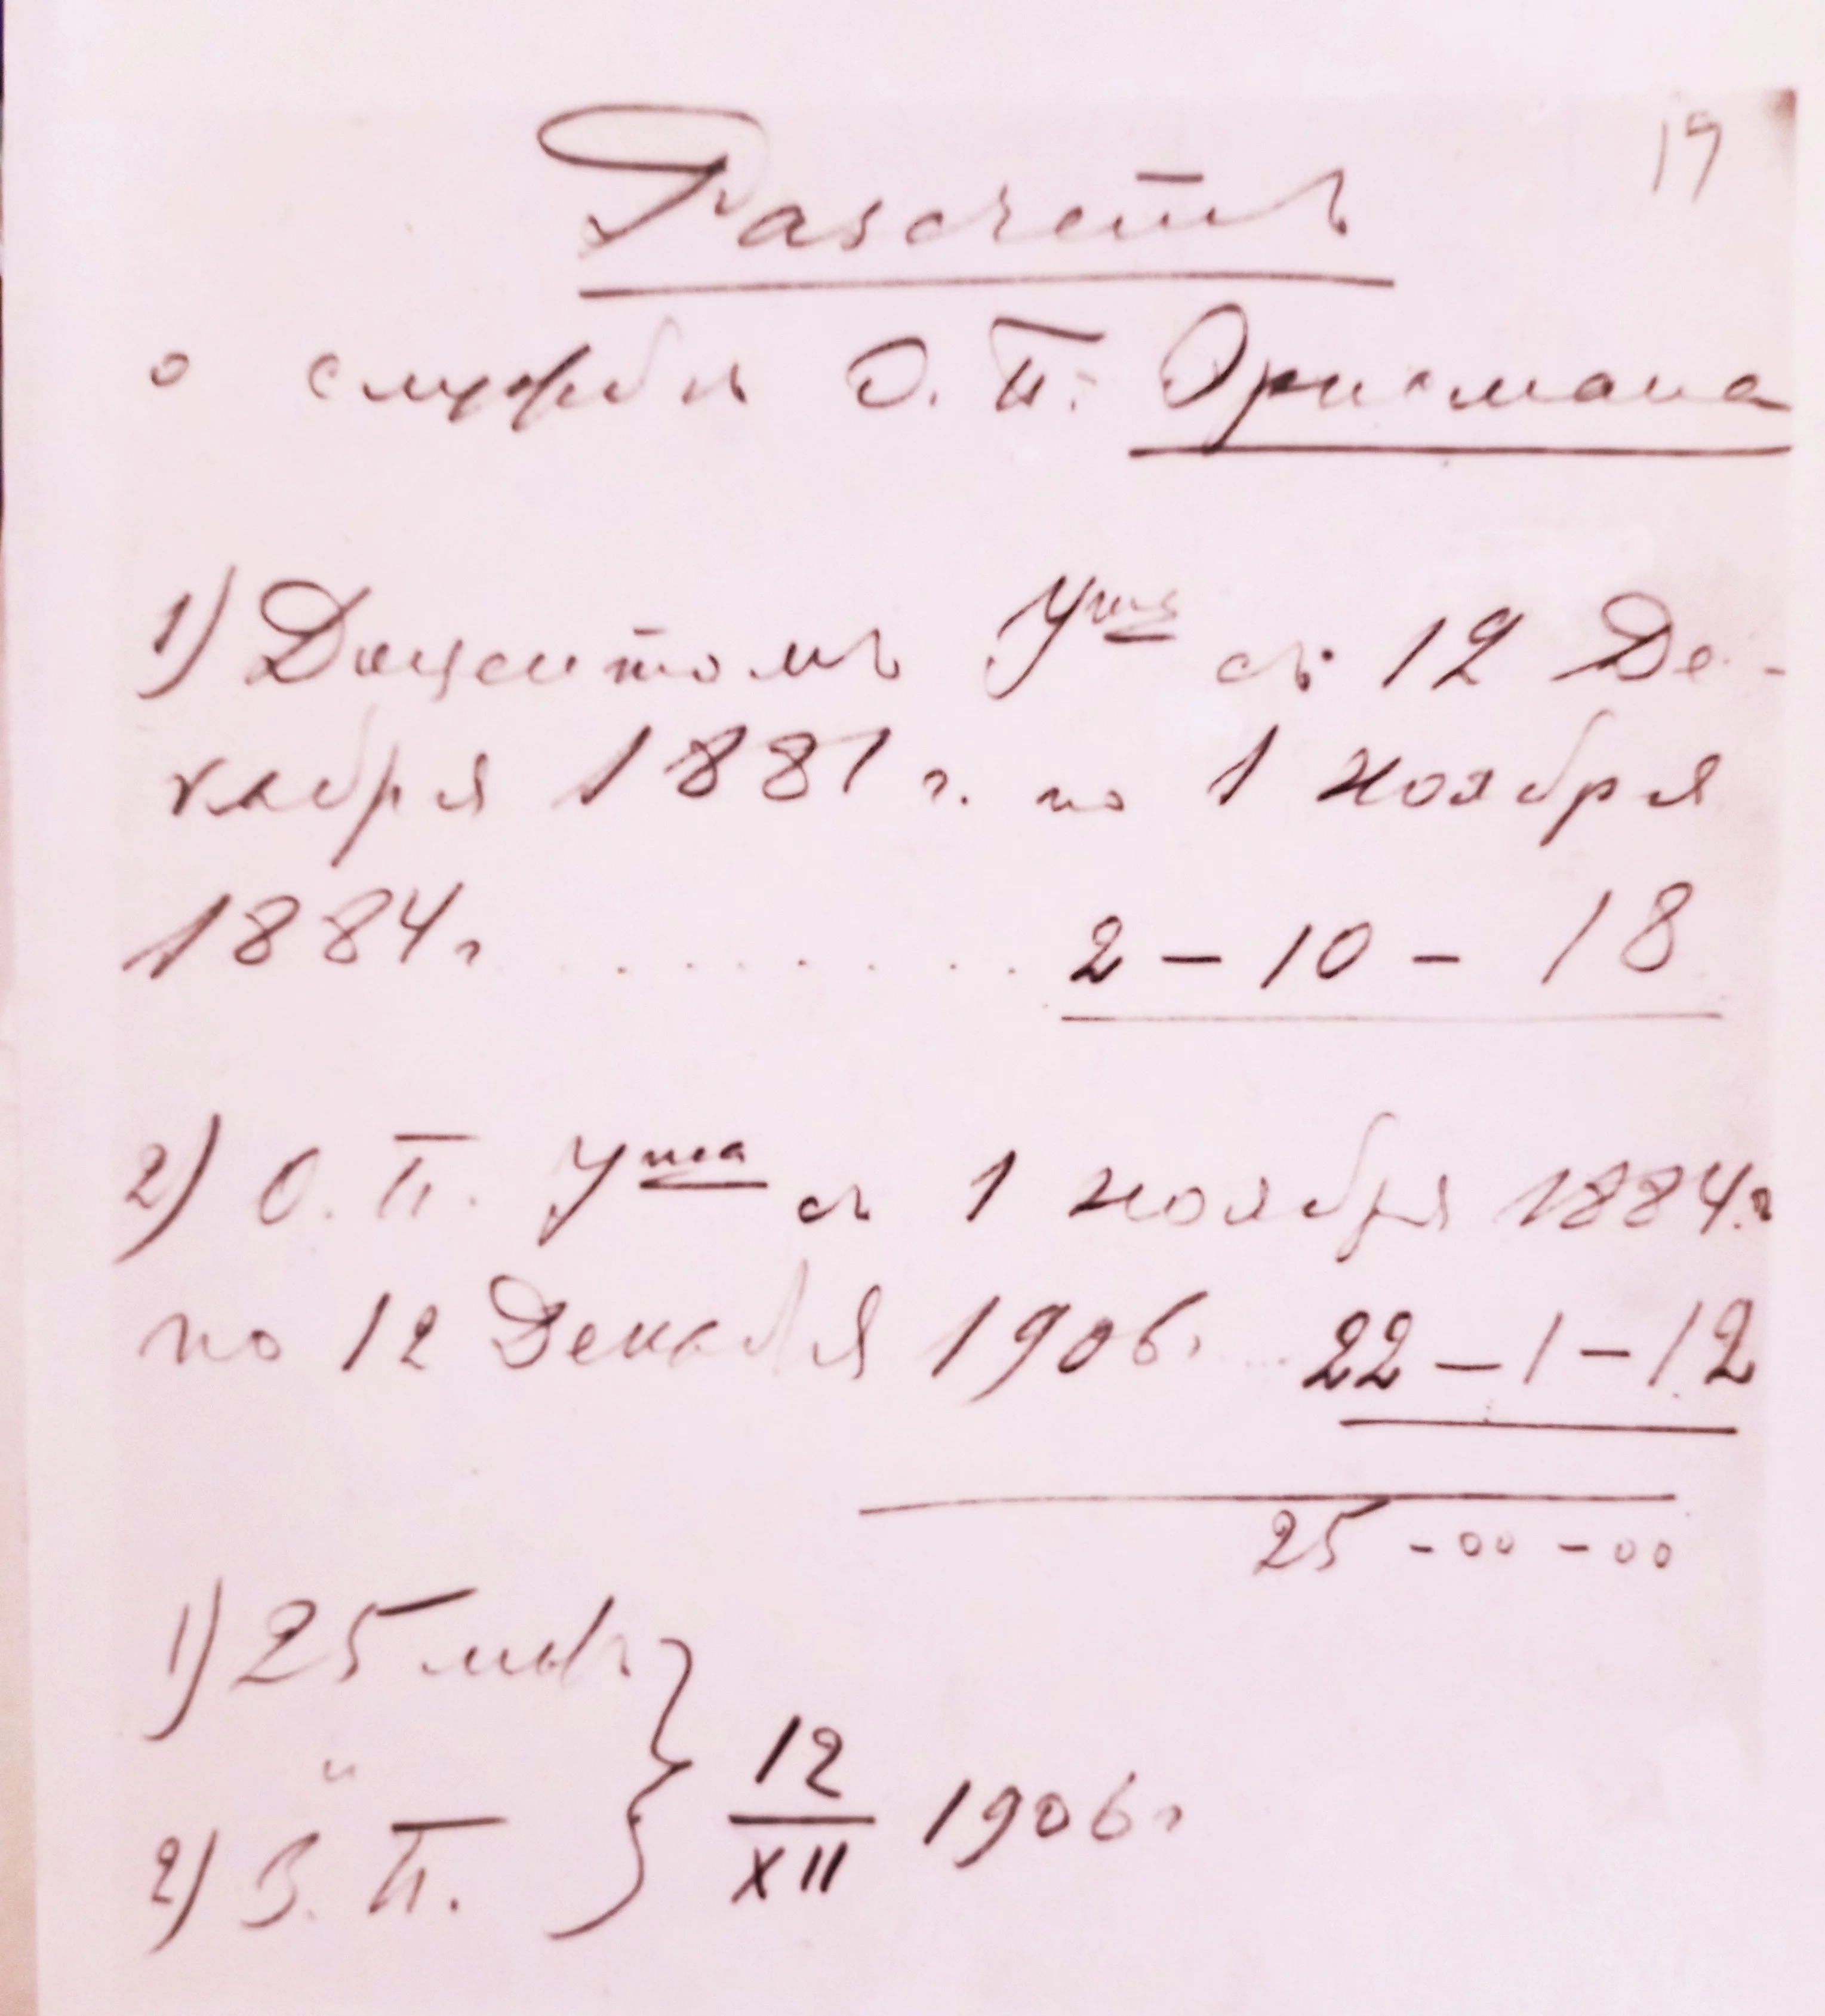 19
Разсчетъ
о службѣ О. П. Эрисмана
1) Доцентомъ Ута съ 12 Де-
кабря 1881 г. по 1 ноября
1884 г. . . . . . . . . . 2 – 10 – 18
2) О. П. Ута съ 1 ноября 1884 г.
по 12 Декабря 1906. . . . 22 – 1 – 12
25 – 00 – 00
1) 25 лѣтъ
и
2) З. П.
12
XII
1906 г